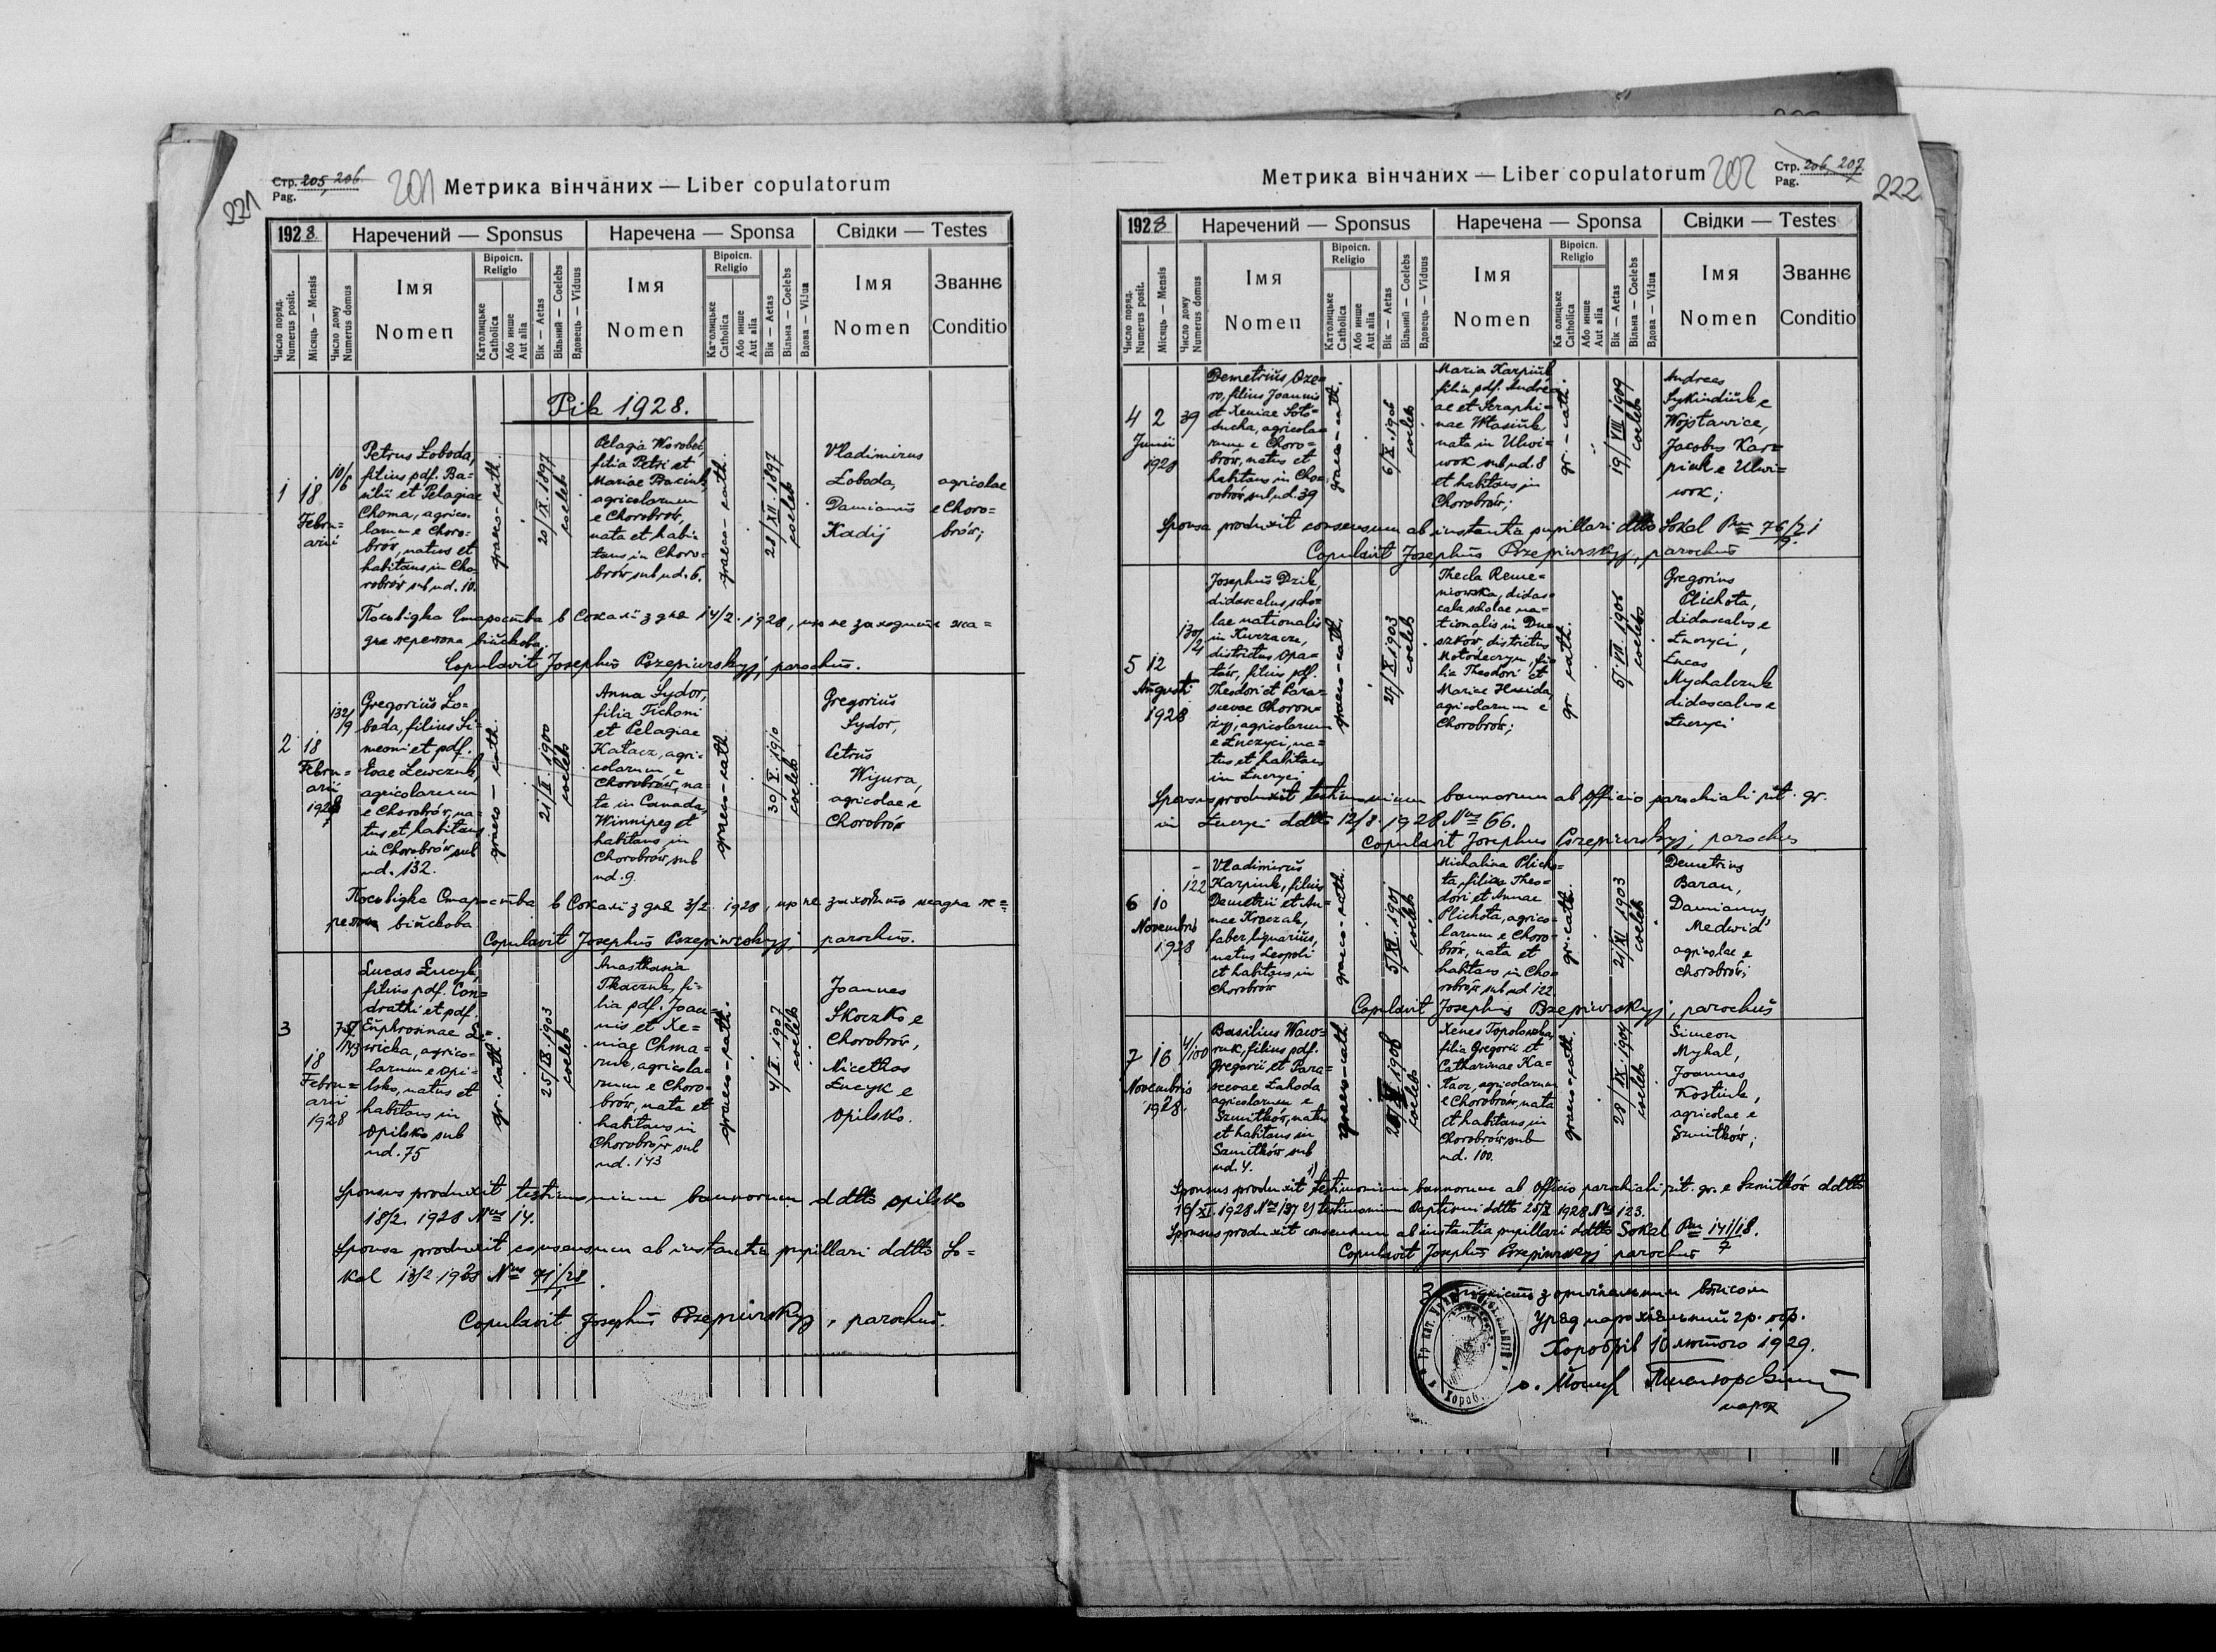 Стр. 205, 206
Pag.
201
221
Метрика вінчаних — Liber copulatorum
1928.
Наречений — Sponsus
Наречена — Sponsa
Свідки — Testes
Число поряд.
Numerus posit.
Місяць — Mensis
Число дому
Numerus domus
Імя
Nomen
Віроісп.
Religio
Католицьке
Catholica
Або инше
Aut alia
Вік — Aetas
Вільний — Coelebs
Вдовець — Viduus
Імя
Nomen
Віроісп.
Religio
Католицьке
Catholica
Або инше
Aut alia
Вік — Aetas
Вільна — Coelebs
Вдова — Vidua
Імя
Nomen
Званнє
Conditio
Рік 1928.
1
18
Febru=
arii
10/6
Petrus Łoboda,
filius pdf. Ba=
silii et Pelagiae
Choma, agrico=
larum e Choro=
brów, natus et
habitans in Cho=
robrów sub nd. 10.
graeco-cath.
20/IX. 1897
coelebs
Pelagia Worobeć,
filia Petri et
Mariae
agricolarum
e Chorobrów,
nata et habi=
tans in Choro=
brów sub nd. 6.
graeco-cath.
28/XII. 1897
coelebs
Vladimirus
Łoboda,
Damianus
Kadij
agricolae
e Choro=
brów;
Посвідка Староства в Сокали з дня 14/2. 1928, що не заходить жа=
дна перепона військова.
Copulavit Josephus Pszepiurskyj, parochus.
2
18
Febru=
arii
1928
132/9
Gregorius Ło=
boda, filius Si=
meoni et pdf.
Evae Lewczuk,
agricolarum
e Chorobrów, na=
tus et habitans
in Chorobrów sub
nd. 132.
graeco-cath.
21/I. 1900
coelebs
Anna Sydor,
filia Tichoni
et Pelagiae
Katacz, agri=
colarum e
Chorobrów, na=
ta in Canada,
Winnipeg et
habitans in
Chorobrów sub
nd. 9.
graeco-cath.
30/X. 1910
coelebs
Gregorius
Sydor,
Petrus
Wijura,
agricolae e
Chorobrów
Посвідка Староства в Сокали з дня 3/2. 1928, що не заходить жадна пе=
репона військова
Copulavit Josephus Pszepiurskyj, parochus.
3
18
Febru=
arii
1928
75/143
Lucas Łucyk,
filius pdf. Con=
drathi et pdf.
Euphrosinae
agrico=
larum e Opi=
lsko, natus et
habitans in
Opilsko sub
nd. 75
gr. cath.
25/IX. 1903
coelebs
Anasthasia
Tkaczuk, fi=
lia pdf. Joan=
nis et Xe=
niae Chma=
ruk, agricola=
rum e Choro=
brów, nata et
habitans in
Chorobrów sub
nd. 143
graeco-cath.
4/I. 1907
coelebs
Joannes
Skoczko e
Chorobrów,
Nicethas
Łucyk e
Opilsko.
Sponsus produxit testimonium bannorum ddtto Opilsko
18/2. 1928 Nus 14.
Sponsa produxit consensum ab instantia pupillari ddtto So=
kal 13/2 1928 Nus 71/28.
Copulavit Josephus Pszepiurskyj, parochus.
Метрика вінчаних — Liber copulatorum
202
Стр. 206, 207
Pag.
222
1928
Наречений — Sponsus
Наречена — Sponsa
Свідки — Testes
Число поряд.
Numerus posit.
Місяць — Mensis
Число дому
Numerus domus
Імя
Nomen
Віроісп.
Religio
Католицьке
Catholica
Або инше
Aut alia
Вік — Aetas
Вільний — Coelebs
Вдовець — Viduus
Імя
Nomen
Віроісп.
Religio
Ка олицьке
Catholica
Або инше
Aut alia
Вік — Aetas
Вільна — Coelebs
Вдова — Vidua
Імя
Nomen
Званнє
Conditio
4
2
Junii
1928
39
Demetrius Oze=
ro, filius Joannis
et Xeniae Soto=
ducha, agricola=
rum e Choro=
brów, natus et
habitans in Cho=
robrów sub nd. 39
graeco-cath.
6/X. 1906
coelebs
Maria Karpiuk
filia pdf. Andre=
ae et Seraphi=
nae Własiuk,
nata in Uhri=
nok sub nd. 8
et habitans in
Chorobrów;
gr.-cath.
19/VIII 1909
coelebs
Andreas
e
Wojsławice,
Jacobus Kar=
piuk e Uhri=
nok;
Sponsa produxit consensum ab instantia pupillari ddtto Sokal 76/2
Copulavit Josephus Pszepiurskyj, parochus
5
12
Augusti
1928
130/4
Josephus Dzik,
didascalus scho=
lae nationalis
in
districtus Opa=
tów, filius pdf.
Theodori et Para=
scevae Choron=
agricolarum
e Łuczyci, na=
tus et habitans
in Łuczyci
graeco-cath.
27/X 1903
coelebs
Thecla Reme=
niowska, didas=
cala scholae na=
tionalis in
districtus
Mołodeczyn, fi=
lia Theodori et
Mariae
agricolarum e
Chorobrów;
gr. cath.
5/VII. 1906
coelebs
Gregorius
Plichota,
didascalus e
Łuczyci,
Lucas
Mychalczuk
didascalus e
Łuczyci
Sponsus produxit testimonium bannorum ab Officio parochiali rit. gr.
in Łuczyci ddtto 12/8 1928 Nus 66.
Copulavit Josephus Pszepiurskyj, parochus
6
10
Novembris
1928
122
Vladimirus
Karpiuk, filius
Demetrii et An=
nae Kraczak,
faber lignarius,
natus Leopoli
et habitans in
Chorobrów
graeco-cath.
5/XI. 1901
coelebs
Michalina Plicho=
ta, filia Theo=
dori et Annae
Plichota, agrico=
larum e Choro=
brów, nata et
habitans in Cho=
robrów sub nd 122
gr. cath.
21/XI 1903
coelebs
Demetrius
Baran,
Damianus
Medwid'
agricolae e
Chorobrów;
Copulavit Josephus Pszepiurskyj, parochus
7
18
Novembris
1928.
4/100
Basilius Waw=
ruk, filius pdf.
Gregorii et Para=
scevae Łahoda
agricolarum e
Szmitków, natus
et habitans in
Szmitków sub
nd. 4.
graeco-cath
1908
coelebs
Xenes
filia Gregorii et
Catharinae Ka=
tacz, agricolarum
e Chorobrów, nata
et habitans in
Chorobrów sub
nd. 100.
graeco-cath.
28/IX. 1904
coelebs
Simeon
Myhal,
Joannes
Kostiuk,
agricolae e
Szmitków;
Sponsus produxit 1) testimonium bannorum ab Officio parochiali rit. gr. e Szmitków ddtto
XI 1928 Nus 137 2) testimonium Baptismi ddtto 1928 Nus 123.
Sponsus produxit consensum ab instantia pupillari ddtto Sokal 141/18.
Copulavit Josephus Pszepiurskyj parochus
з оригінальним вписом
Уряд парохіяльний гр. обр.
Хоробрів 10 лютого 1929.
о.
парох